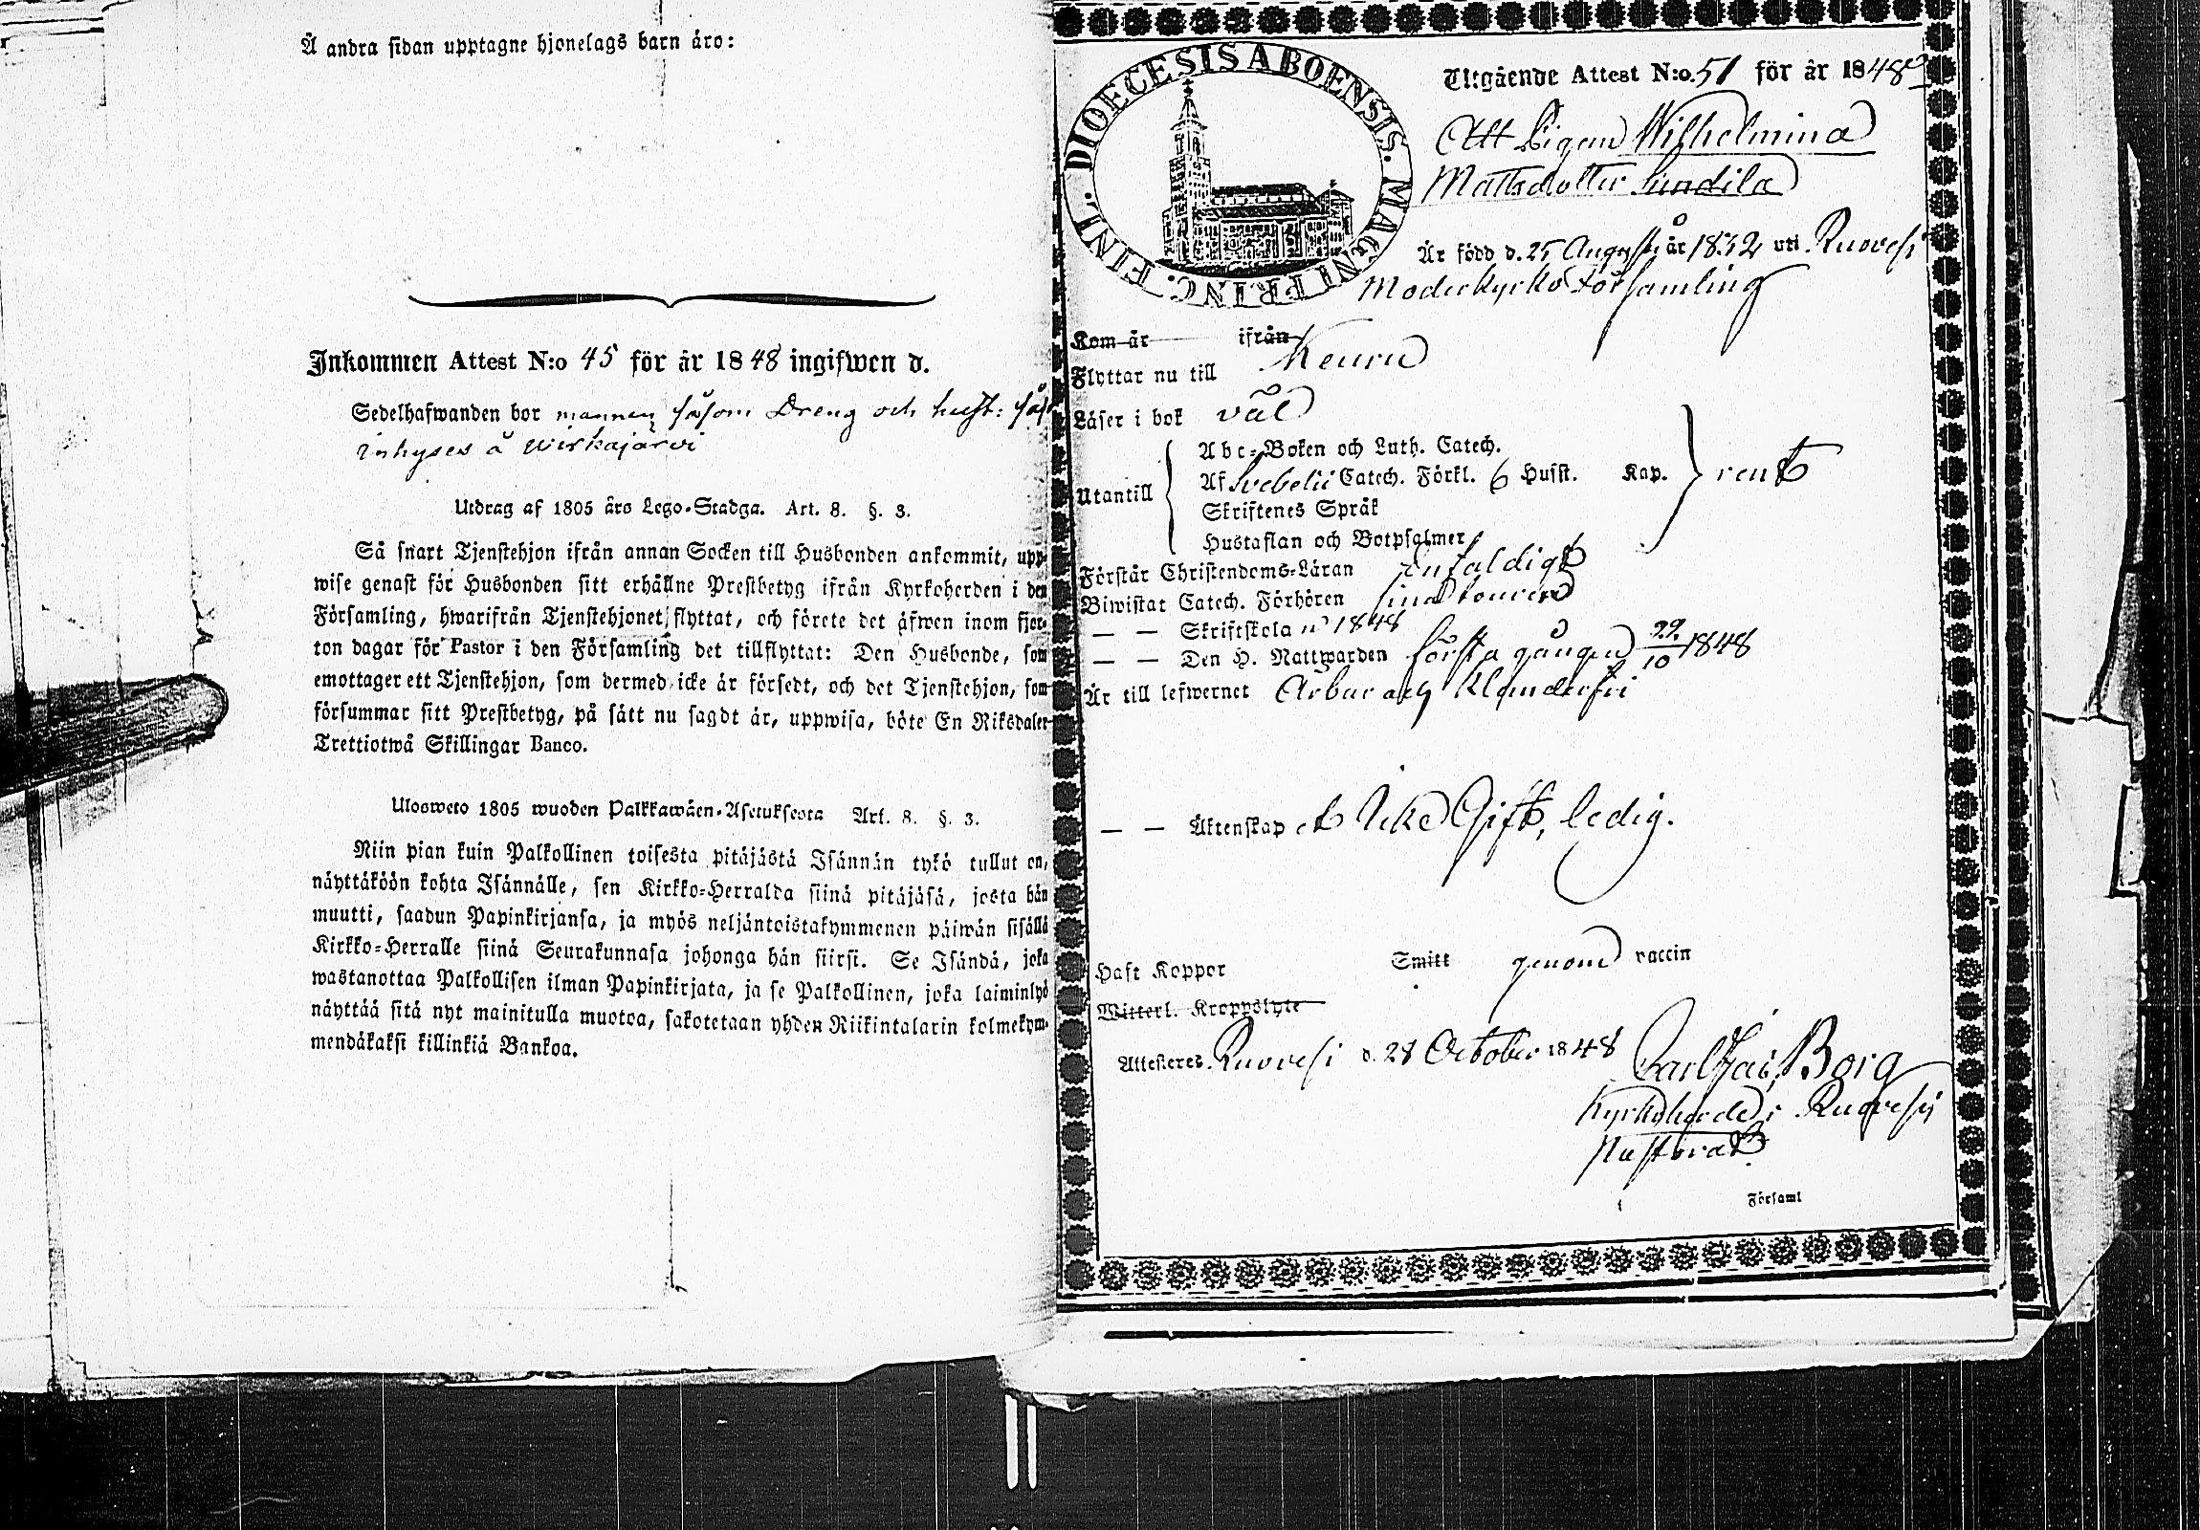 Å andra sidan upptagne hjonelags barn äro:
Inkommen Attest N:o 45 för år 1848 ingifwen d.
Sedelhafwanden bor mannen såsom Dreng och hust: så
inhyses å Wirkajärvi
Utdrag af 1805 års Lego-Stadga. Art. 8. §. 3.
Så snart Tjenstehjon ifrån annan Socken till Husbonden ankommit, upp-
wise genast för Husbonden sitt erhållne Prestbetyg ifrån Kyrkoherden i den
Församling, hwarifrån Tjenstehjonet flyttat, och förete det äfwen inom fjor-
ton dagar för Pastor i den Församling det tillflyttat: Den Husbonde, som
emottager ett Tjenstehjon, som dermed icke är försedt, och det Tjenstehjon, som
försummar sitt Prestbetyg, på sätt nu sagdt är, uppwisa, böte En Riksdaler
Trettiotwå Skillingar Banco.
Ulosweto 1805 wuoden Palkkawäen-Asetuksesta Art. 8. §. 3.
Niin pian kuin Palkollinen toisesta pitäjästä Isännän tykö tullut on,
näyttäköön kohta Isännälle, sen Kirkko-Herralda siinä pitäjäsä, josta hän
muutti, saadun Papinkirjansa, ja myös neljäntoistakymmenen päiwän sisällä
Kirkko-Herralle siinä Seurakunnasa johonga hän siirsi. Se Isändä, joka
wastanottaa Palkollisen ilman Papinkirjata, ja se Palkollinen, joka laiminlyö
näyttää sitä nyt mainitulla muotoa, sakotetaan yhden Riikintalarin kolmekym-
mendäkaksi killinkiä Bankoa.
DIOECESIS ABOENSIS. MAGNI PRINC. FINL.
Utgående Attest N:o 51 för år 1848
Att Pigan Wilhelmina
Mattsdotter
Är född d. 25 Augusti år 1832 uti Ruovesi
Moderkyrko Församling
Kom år ifrån
Flyttar nu till Keuru
Läser i bok väl
Abc-Boken och Luth. Catech.
Utantill Af Svebelii Catech. Förkl. 6 Husst. Kap. rent
Skriftenes Språk
Hustaflan och Botpsalmer
Förstår Christendoms-Läran enfaldigt
Biwistat Catech. Förhören
— — Skriftskola 1848
— — Den H. Nattwarden första gången 22/10 1848
Är till lefwernet Ärbar och Klanderfri
— — Äktenskap Icke Gift, ledig.
Haft Koppor Smitt genom vaccin
Witterl. Kroppslyte
Attesteres Ruovesi d. 28 October 1848 Borg
Kyrkoherde i Ruovesi
Pastorat.
Församl